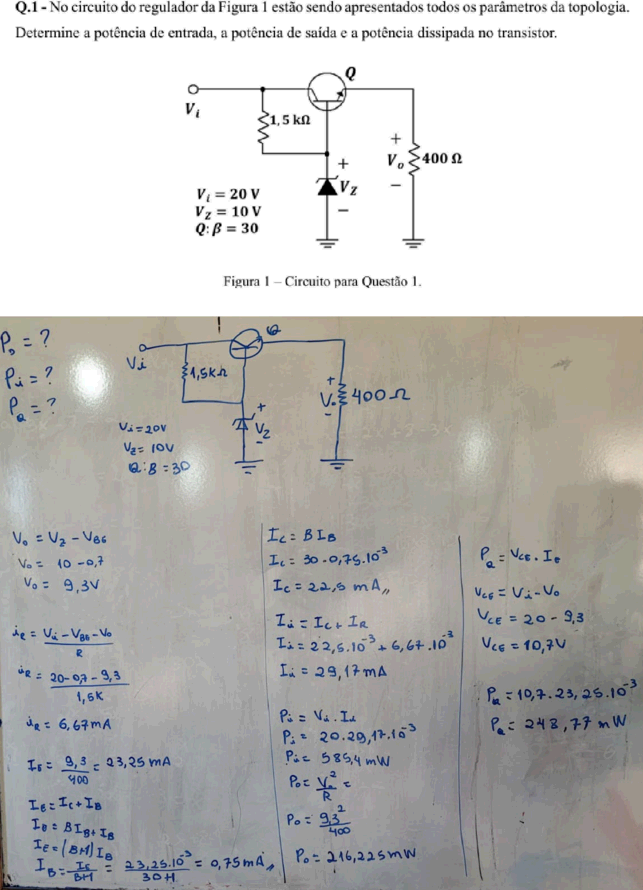 Q.1 - No circuito do regulador da Figura 1 estão sendo apresentados todos os parâmetros da topologia.
Determine a potência de entrada, a potência de saída e a potência dissipada no transistor.
Q
V_i
1,5 kΩ
+
V_o
400 Ω
−
+
V_Z
−
V_i = 20 V
V_Z = 10 V
Q: β = 30
Figura 1 – Circuito para Questão 1.
P_o = ?
P_i = ?
P_Q = ?
Q
Vi
1,5KΩ
+
V_o
400Ω
-
+
V_Z
-
V_i = 20V
V_Z = 10V
Q: B = 30
V_o = V_Z - V_BE
V_o = 10 - 0,7
V_o = 9,3V
i_R = V_i - V_BE - V_o / R
i_R = 20 - 0,7 - 9,3 / 1,5K
i_R = 6,67mA
I_E = 9,3 / 400 = 23,25 mA
I_E = I_C + I_B
I_E = BI_B + I_B
I_E = (B+1) I_B
I_B = I_E / B+1 = 23,25.10^-3 / 30+1 = 0,75mA,,
I_C = B I_B
I_C = 30.0,75.10^-3
I_C = 22,5 mA,,
I_i = I_C + I_R
I_i = 22,5.10^-3 + 6,67.10^-3
I_i = 29,17mA
P_i = V_i . I_i
P_i = 20.29,17.10^-3
P_i = 585,4 mW
P_o = V_o^2 / R =
P_o = 9,3^2 / 400
P_o = 216,225mW
P_Q = V_CE . I_E
V_CE = V_i - V_o
V_CE = 20 - 9,3
V_CE = 10,7V
P_Q = 10,7.23,25.10^-3
P_Q = 248,77 mW